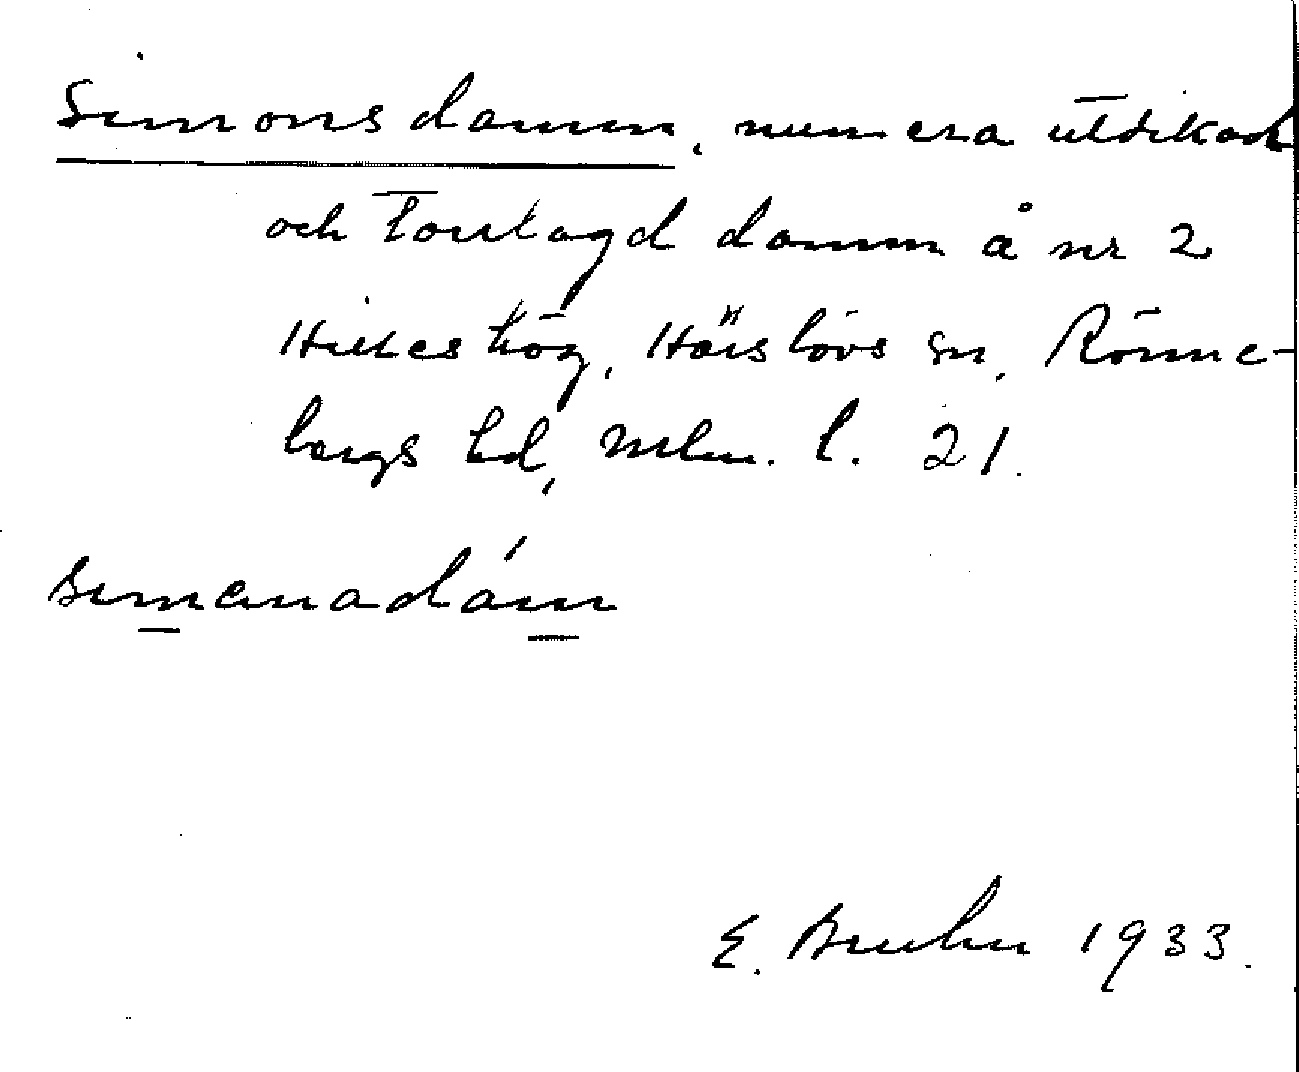 Simonsdamm, numera utdikad
och borttagd damm å nr 2
Hilleshög, Härslövs sn, Rönne-
bergs hd, Mlm. l. 21.
simenadám
E. Bruhn 1933.